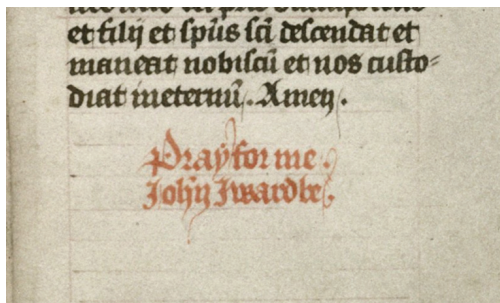 et filij et sp̄us sc̄i descendat et
maneat nobiscū et nos custo=
diat in eternū. Amen.
Pray for me.
John